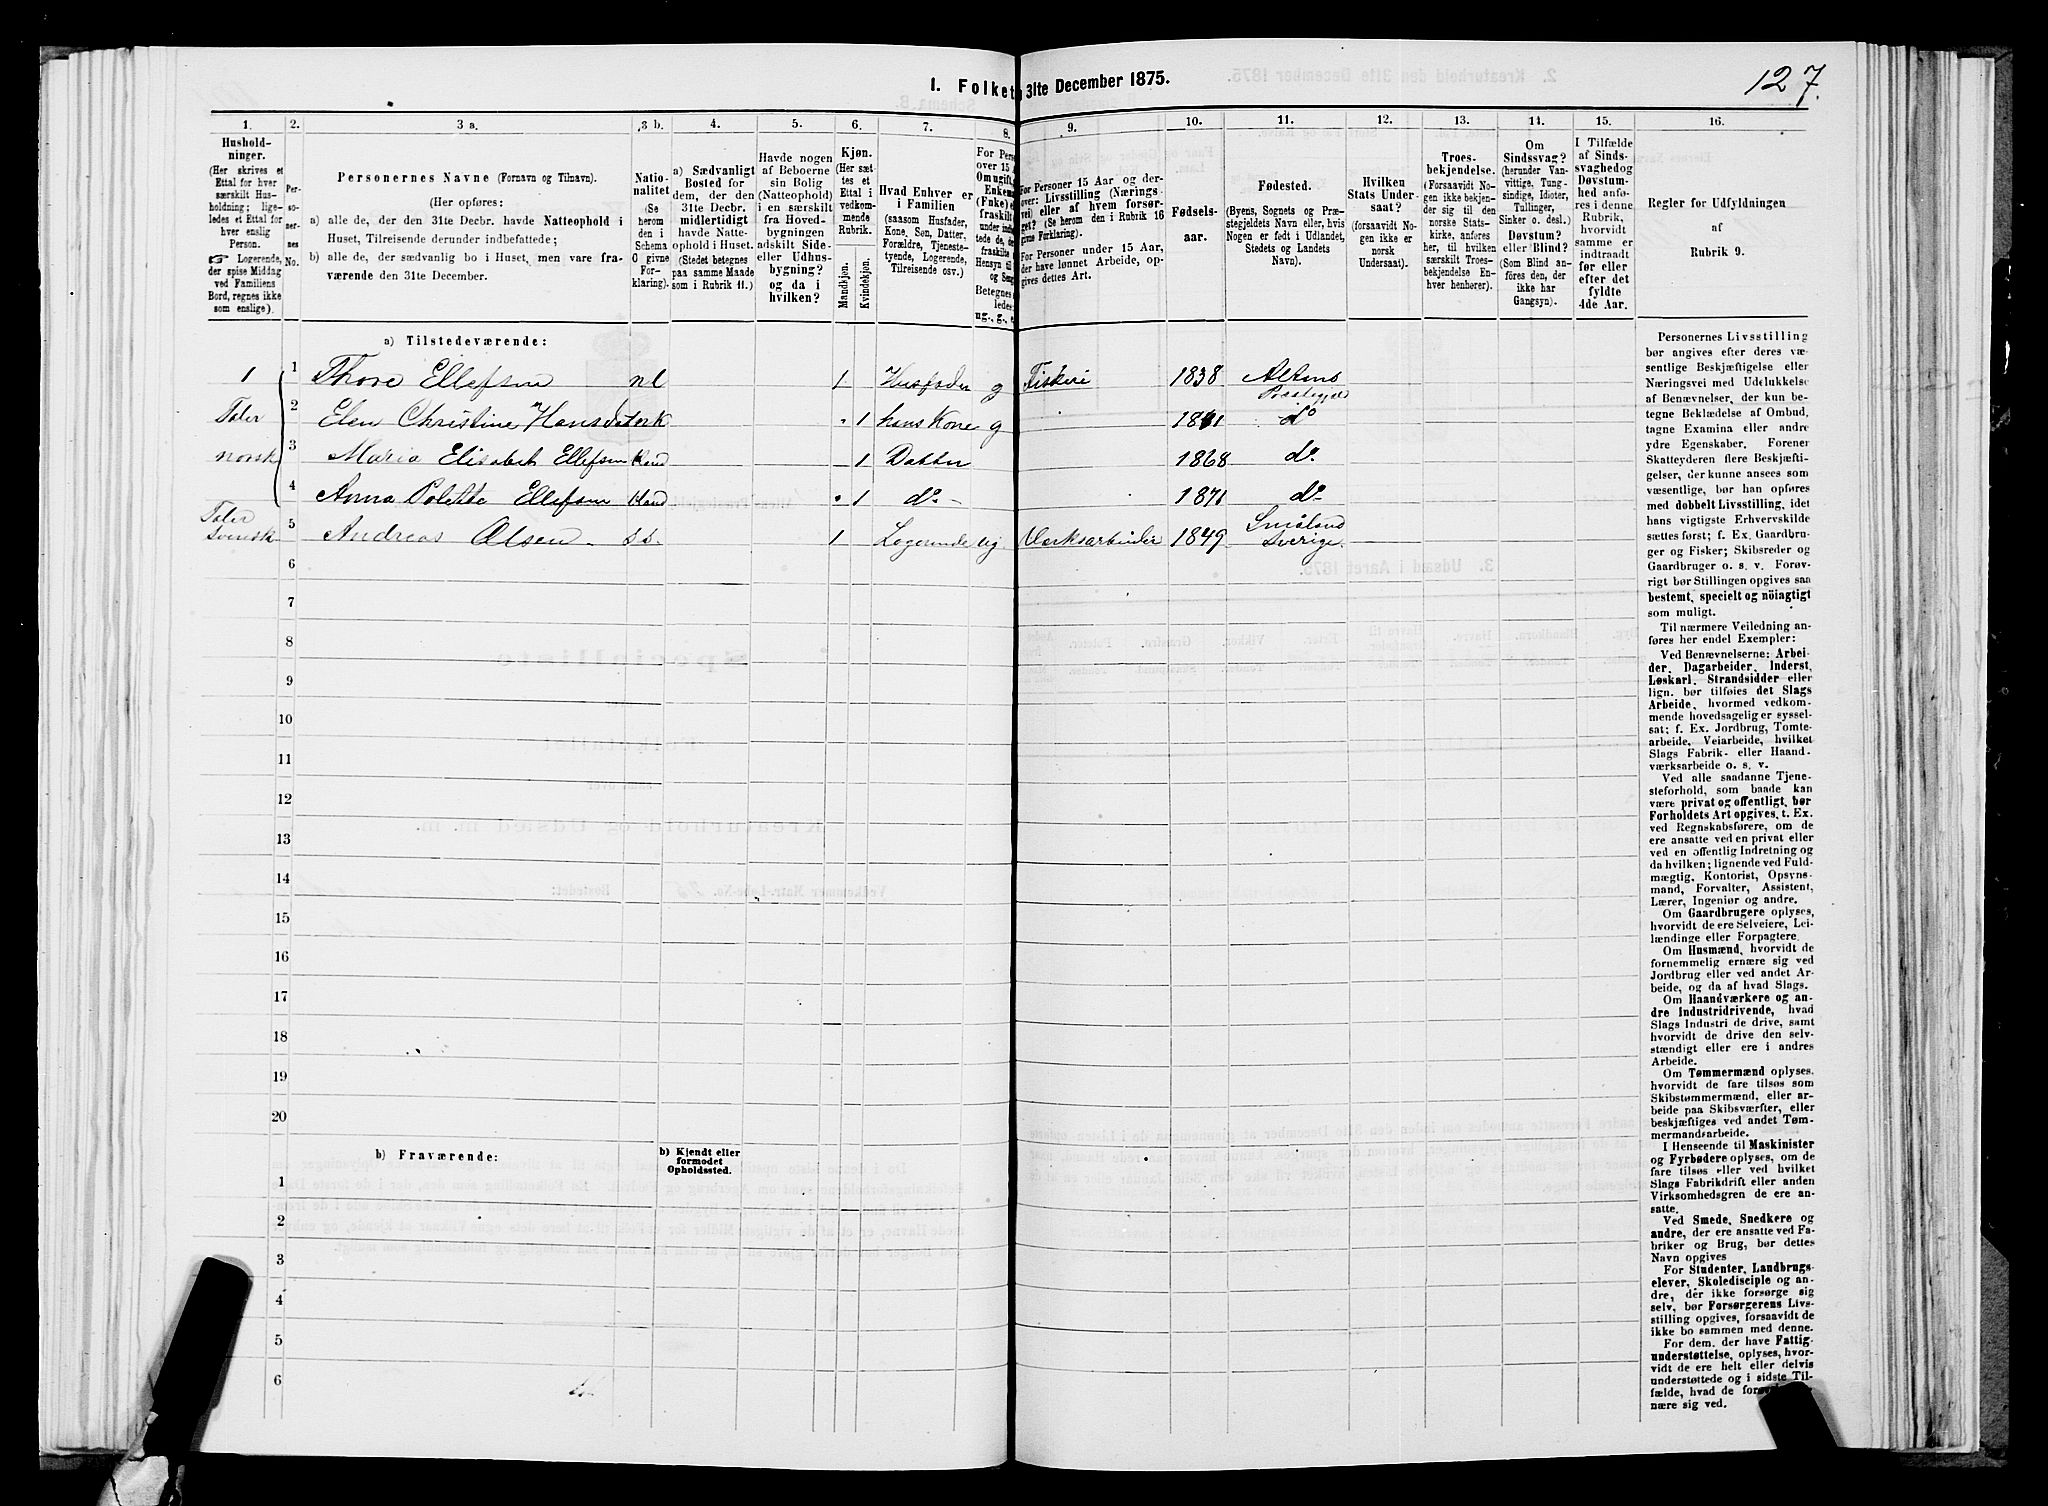 127.
1. Folket 31te December 1875.
1. 2. 3 a. 3 b. 4. 5. 6. 7. 8. 9. 10. 11. 12. 13. 14. 15. 16.
Husholdninger.
(Her skrives et
Ettal for hver
særskilt Husholdning;
ligeledes et Ettal for
hver enslig
Person.
Logerende,
der spise Middag
ved Familiens
Bord, regnes ikke
som enslige).
Personernes
No.
Personernes Navne (Fornavn og Tilnavn).
(Her opføres:
a) alle de, der den 31te Decbr. havde Natteophold i
Huset, Tilreisende derunder indbefattede;
b) alle de, der sædvanlig bo i Huset, men vare fraværende
den 31te December.
Nationalitet
(Se
herom
den i
Schema
O givne
Forklaring).
a) Sædvanligt
Bosted for
dem, der den
31te Decbr.
midlertidigt
havde Natteophold
i Huset.
(Stedet betegnes
paa samme Maade
som i Rubrik 11.)
Havde nogen
af Beboerne
sin Bolig
(Natteophold)
i en særskilt
fra Hovedbygningen
adskilt Side-
eller Udhusbygning?
og da i
hvilken?
Kjøn.
(Her sættes
et
Ettal i
vedkommende
Rubrik.
Mandkjøn.
Kvindekjøn.
Hvad Enhver er
i Familien
(saasom Husfader,
Kone, Søn, Datter,
Forældre, Tjenestetyende,
Logerende,
Tilreisende osv.)
For Personer 15 Aar og derover:
Livsstilling (Næringsvei)
eller af hvem forsørget?
(Se herom den i Rubrik 16
givne Forklaring).
For Personer under 15 Aar,
der have lønnet Arbeide, opgives
dettes Art.
Fødselsaar.
Fødested.
(Byens, Sognets og Præstegjeldets
Navn eller, hvis
Nogen er født i Udlandet,
Stedets og Landets
Navn).
Hvilken
Stats Undersaat?
(forsaavidt Nogen
ikke er
norsk
Undersaat).
Troesbekjendelse.
(Forsaavidt Nogen
ikke bekjender
sig til den
norske Statskirke,
anføres
her, til hvilken
særskilt Troesbekjendelse
Enhver
henhører).
Om
Sindssvag?
(herunder Vanvittige,
Tungsindige,
Idioter,
Tullinger,
Sinker o. desl.)
Døvstum?
eller Blind?
(Som Blind anføres
den, der
ikke har
Gangsyn).
I Tilfælde
af Sindssvaghed
og
Døvstumhed
anføres
i denne
Rubrik,
hvorvidt
samme er
indtraadt
før eller
efter det
fyldte
4de Aar.
Regler for Udfyldningen
af
Rubrik 9.
a) Tilstedeværende:
1 1 Thore Ellefsen nl 1 Husfader g Fiskeri 1838 Altens Præstegjeld
Taler 2 Elen Christine Hansdat 1 hans Kone g do
norsk 3 Maria Elisabet Ellefsen 1 Datter 1868 do
4 Anna Ellefsen 1 do 1871 do
Taler svensk 5 Andreas Olsen 1 Logerende ug. 1849 Småland Sverige
6
7
8
9
10
11
12
13
14
15
16
17
18
19
20
b) Fraværende:
b) Kjendt eller
formodet
Opholdssted.
1
2
3
4
5
6
Personernes Livsstilling
bør angives efter deres væsentlige
Beskjæftigelse eller
Næringsvei med Udelukkelse
af Benævnelser, der kun betegne
Beklædelse af Ombud,
tagne Examina eller andre
ydre Egenskaber. Forener
Skatteyderen flere Beskjæftigelser,
der kunne ansees som
væsentlige, bør han opføres
med dobbelt Livsstilling, idet
hans vigtigste Erhvervskilde
sættes først; f. Ex. Gaardbruger
og Fisker; Skibsreder og
Gaardbruger o. s. v. Forøvrigt
bør Stillingen opgives saa
bestemt, specielt og nöiagtigt
som muligt.
Til nærmere Veiledning anføres
her endel Exempler:
Ved Benævnelserne: Arbeider,
Dagarbeider, Inderst,
Løskarl, Strandsidder eller
lign. bør tilføies det Slags
Arbeide, hvormed vedkommende
hovedsagelig er sysselsat;
f. Ex. Jordbrug, Tomtearbeide,
Veiarbeide, hvilket
Slags Fabrik- eller Haandværksarbeide
o. s. v.
Ved alle saadanne Tjenesteforhold,
som baade kan
være privat og offentligt, bør
Forholdets Art opgives, t. Ex.
ved Regnskabsførere, om de
ere ansatte ved en privat eller
ved en offentlig Indretning og
da hvilken; lignende ved Fuldmægtig,
Kontorist, Opsynsmand,
Forvalter, Assistent,
Lærer, Ingeniør og andre.
Om Gaardbrugere oplyses,
hvorvidt de ere Selveiere, Leilændinge
eller Forpagtere.
Om Husmænd, hvorvidt de
fornemmelig ernære sig ved
Jordbrug eller ved andet Arbeide,
og da af hvad Slags.
Om Haandværkere og andre
Industridrivende, hvad
Slags Industri de drive, samt
hvorvidt de drive den selvstændigt
eller ere i andres
Arbeide.
Om Tømmermænd oplyses,
hvorvidt de fare tilsøs som
Skibstømmermænd, eller arbeide
paa Skibsværfter, eller
beskjæftiges ved andet Tømmermandsarbeide.
I Henseende til Maskinister
og Fyrbødere oplyses, om de
fare tilsøs eller ved hvilket
Slags Fabrikdrift eller anden
Virksomhedsgren de ere ansatte.
Ved Smede, Snedkere og
andre, der ere ansatte ved Fabriker
og Brug, bør dettes
Navn opgives
For Studenter, Landbrugselever,
Skoledisciple og andre,
der ikke forsørge sig
selv, bør Forsørgerens Livsstilling
opgives, forsaavidt de
ikke bo sammen med denne.
For dem, der have Fattigunderstøttelse,
oplyses, hvorvidt
de ere helt eller delvis
understøttede og i sidste Tilfælde,
hvad de
nære sig ved.